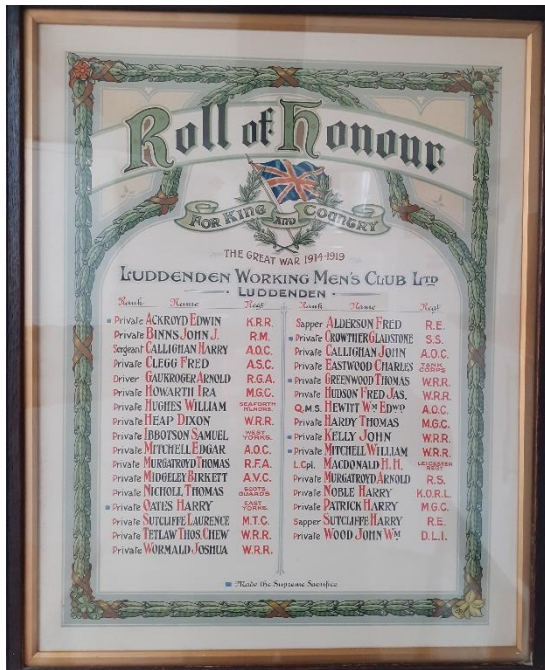 Roll of Honour
FOR KING AND COUNTRY
THE GREAT WAR 1914-1919
LUDDENDEN WORKING MEN'S CLUB LTD
LUDDENDEN
Rank Name Regt
Private ACKROYD EDWIN K.R.R.
Private BINNS JOHN J. R.M.
Sergeant CALLIGHAN HARRY A.O.C.
Private CLEGG FRED A.S.C.
Driver GAUKROGER ARNOLD R.G.A.
Private HOWARTH IRA M.G.C.
Private HUGHES WILLIAM SEAFORTH HLNDRS.
Private HEAP DIXON W.R.R.
Private IBBOTSON SAMUEL WEST YORKS.
Private MITCHELL EDGAR A.O.C.
Private MURGATROYD THOMAS R.F.A.
Private MIDGELEY BIRKETT A.V.C.
Private NICHOLL THOMAS SCOTS GUARDS
Private OATES HARRY EAST YORKS.
Private SUTCLIFFE LAURENCE M.T.C.
Private TETLAW THOS. CHEW W.R.R.
Private WORMALD JOSHUA W.R.R.
Rank Name Regt
Sapper ALDERSON FRED R.E.
Private CROWTHER GLADSTONE S.S.
Private CALLIGHAN JOHN A.O.C.
Private EASTWOOD CHARLES TANK CORPS
Private GREENWOOD THOMAS W.R.R.
Private HUDSON FRED JAS. W.R.R.
Q.M.S. HEWITT WM EDWD A.O.C.
Private HARDY THOMAS M.G.C.
Private KELLY JOHN W.R.R.
Private MITCHELL WILLIAM W.R.R.
L.Cpl. MACDONALD H.H. LEICESTER REGT
Private MURGATROYD ARNOLD R.S.
Private NOBLE HARRY K.O.R.L.
Private PATRICK HARRY M.G.C.
Sapper SUTCLIFFE HARRY R.E.
Private WOOD JOHN WM D.L.I.
Made the Supreme Sacrifice